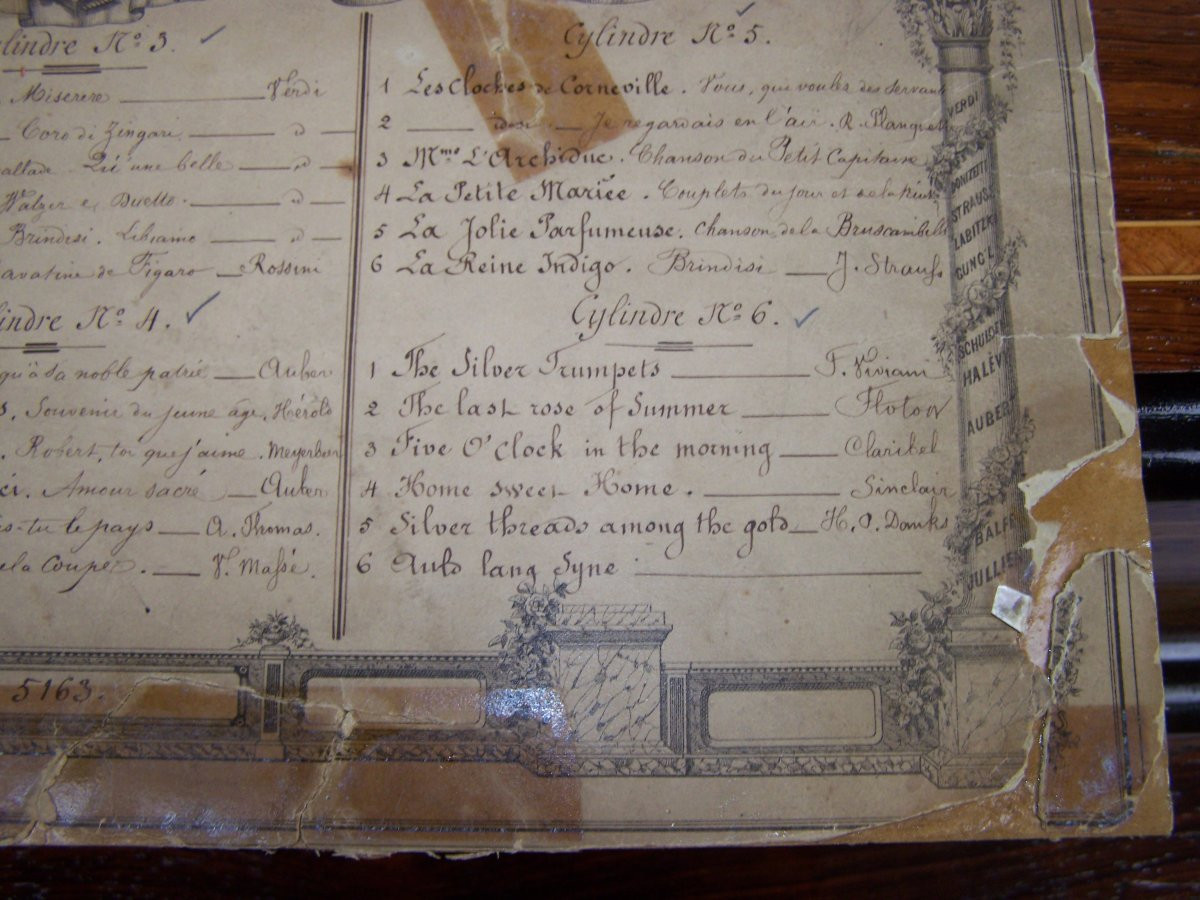 lindre Nº 3.
Miserere Verdi
Coro di Zingari d
allade Qu'une belle d
Walzer e Duetto d
Brindisi. Libiamo d
avatine de Figaro Rossini
indre Nº 4.
qu'à sa noble patrie Auber
s. Souvenir du jeune âge. Hérold
. Robert, toi que j'aime. Meyerbeer
ci. Amour sacré Auber
s-tu le pays A. Thomas.
de la Coupe. V. Massé.
5163.
Cylindre Nº 5.
1 Les Cloches de Corneville. Vous, qui voulez des servant
2 Je regardais en l'air. R. Planquet
3 Mme L'Archiduc. Chanson du Petit Capitaine
4 La Petite Mariée. Couplets du jour et de la
5 La Jolie Parfumeuse. Chanson de la Bruscambill
6 La Reine Indigo. Brindisi J. Strauss
Cylindre Nº 6.
1 The Silver Trumpets F. Viviani
2 The last rose of Summer Flotow
3 Five O'Clock in the morning Claribel
4 Home sweet Home. Sinclair
5 Silver threads among the gold H. O. Danks
6 Auld lang Syne
VERDI
DONIZETTI
STRAUSS
LABITZKY
GUNGL
HALÉVY
AUBERT
BALFE
JULLIEN